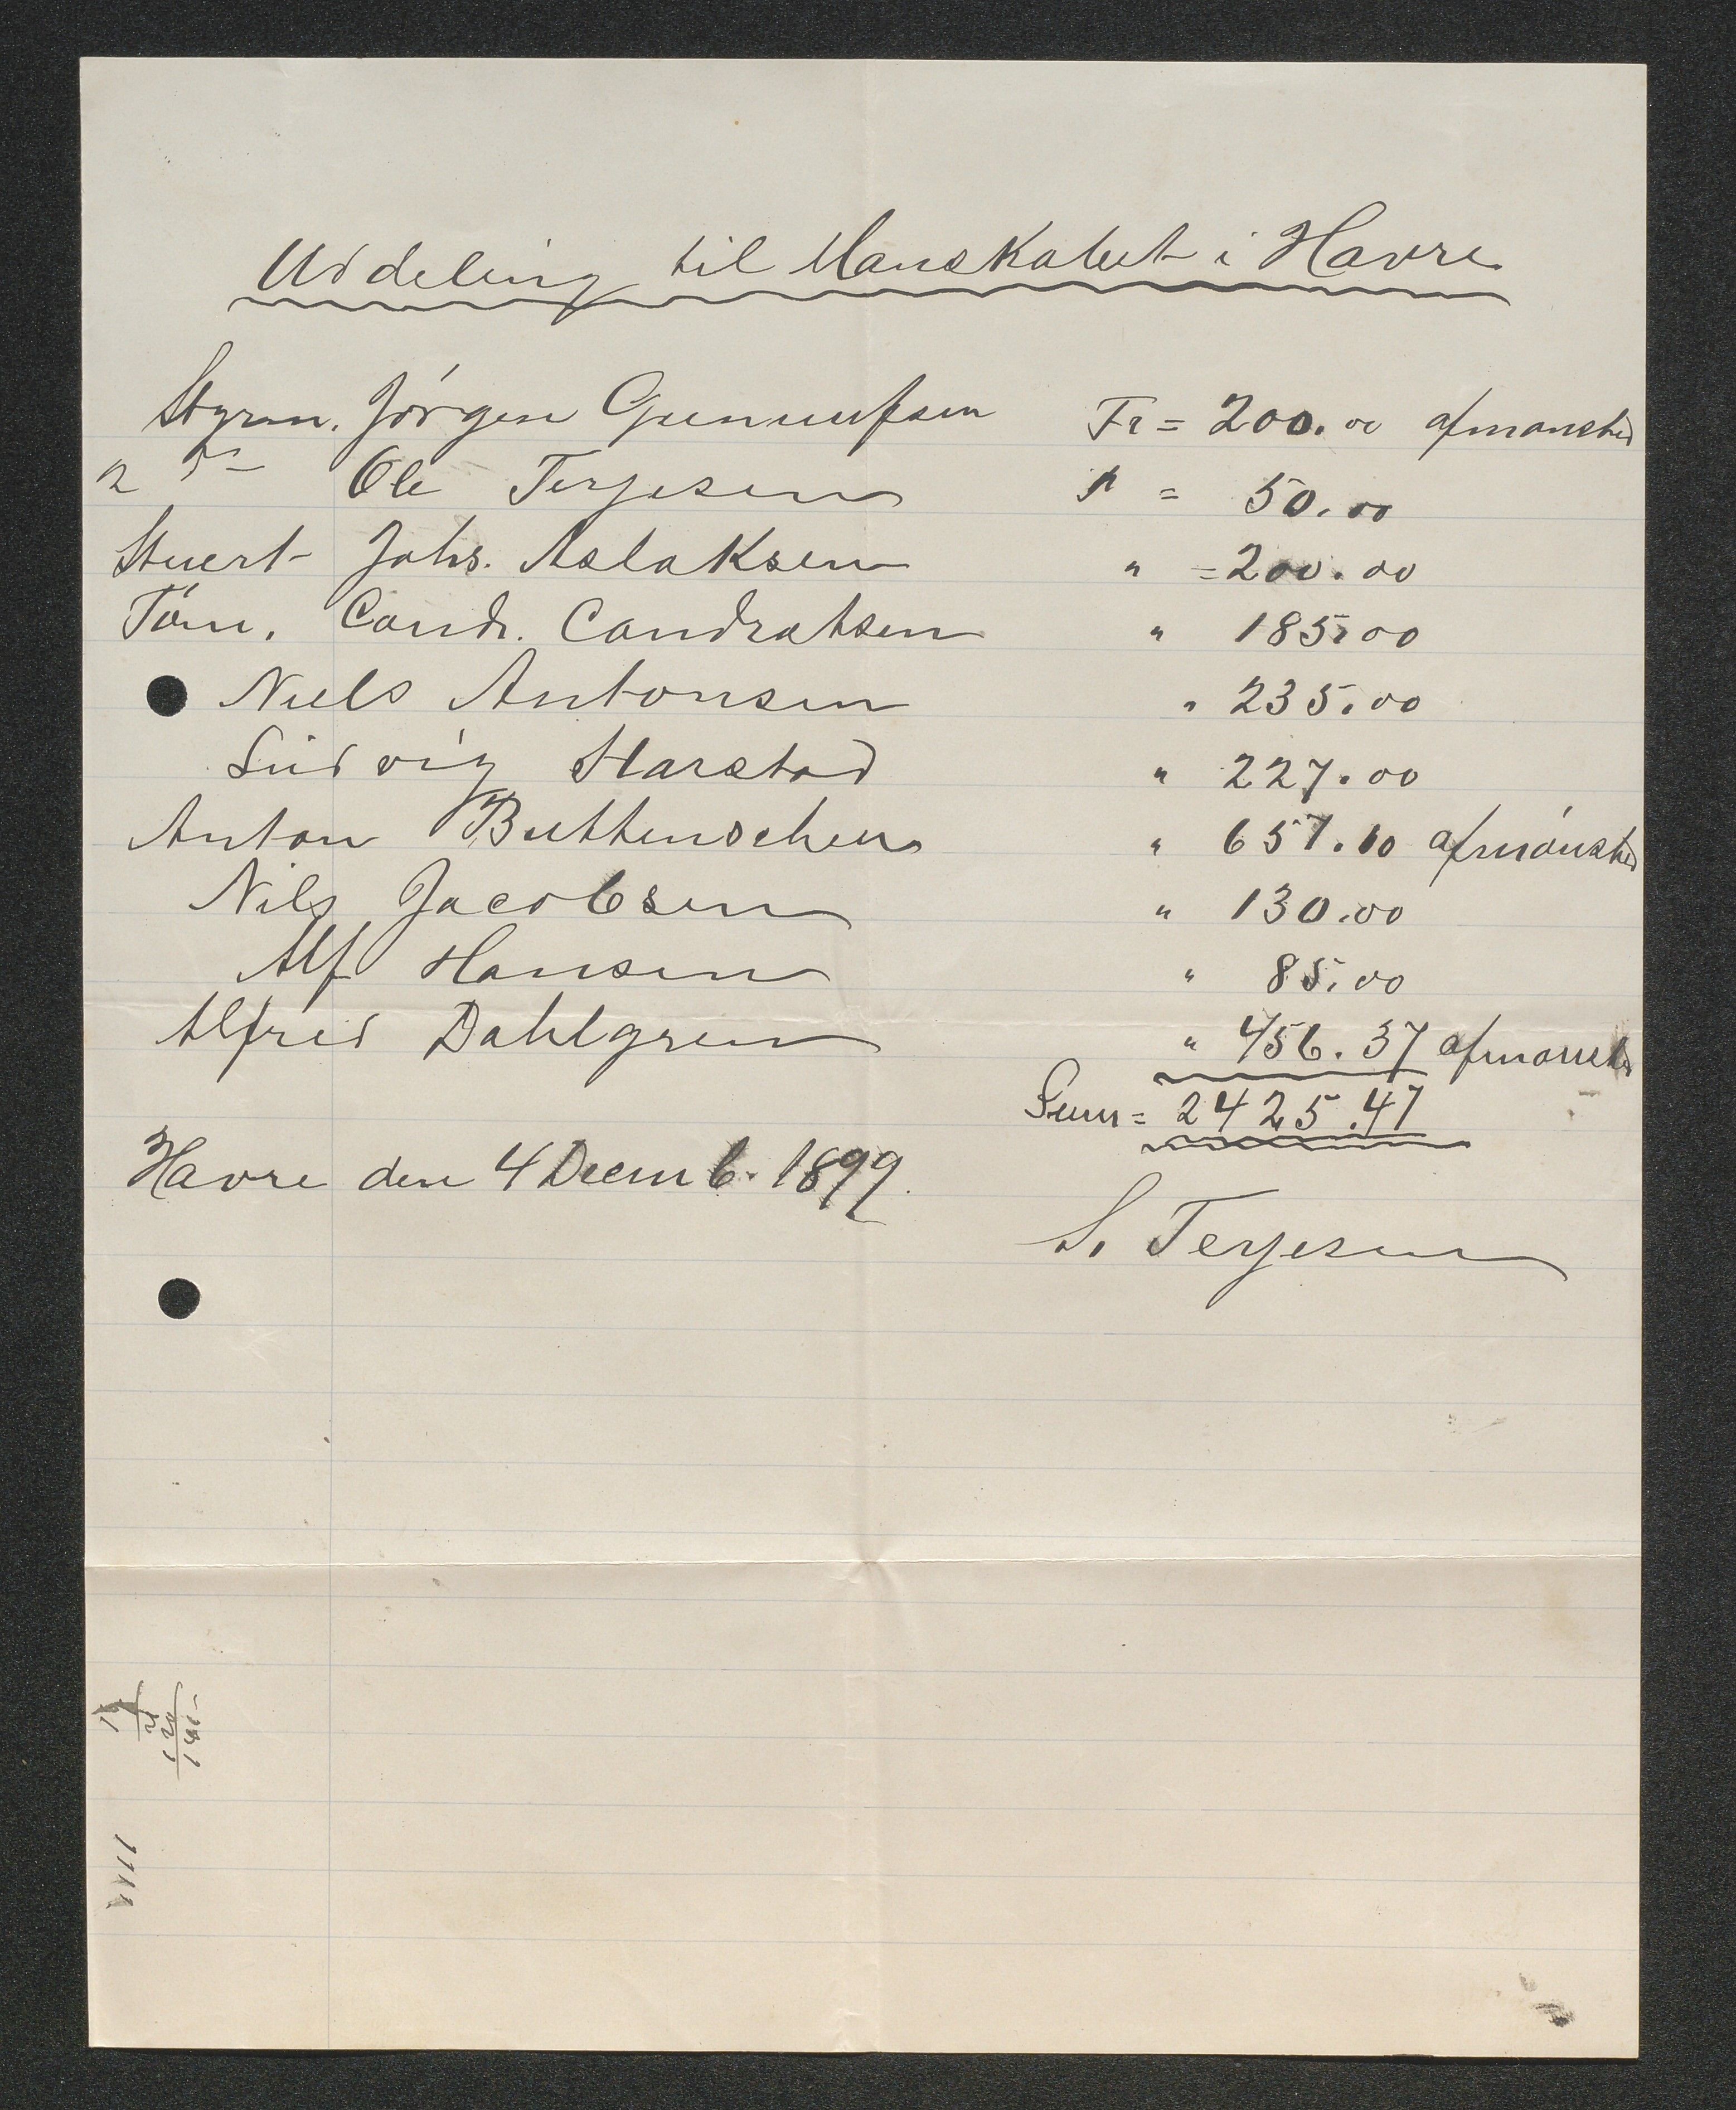 Uddeling til Manskabet i Havre
Styrm. Jörgen Gunnufsen Fr = 200.00 afmönstred
2 Do Ole Terjesen " = 50.00
Stuert Johs. Aslaksen " = 200.00
Töm. Candr. Candratsen " 185.00
Niels Antonsen " 235.00
Ludvig Harstad " 227.00
Anton Buttenschen " 657.10 afmönstred
Nils Jacobsen " 130.00
Alf Hansen " 85.00
Alfred Dahlgren " 456.37 afmönstred
Sum = 2425.47
Havre den 4 Decemb. 1899.
S. Terjesen